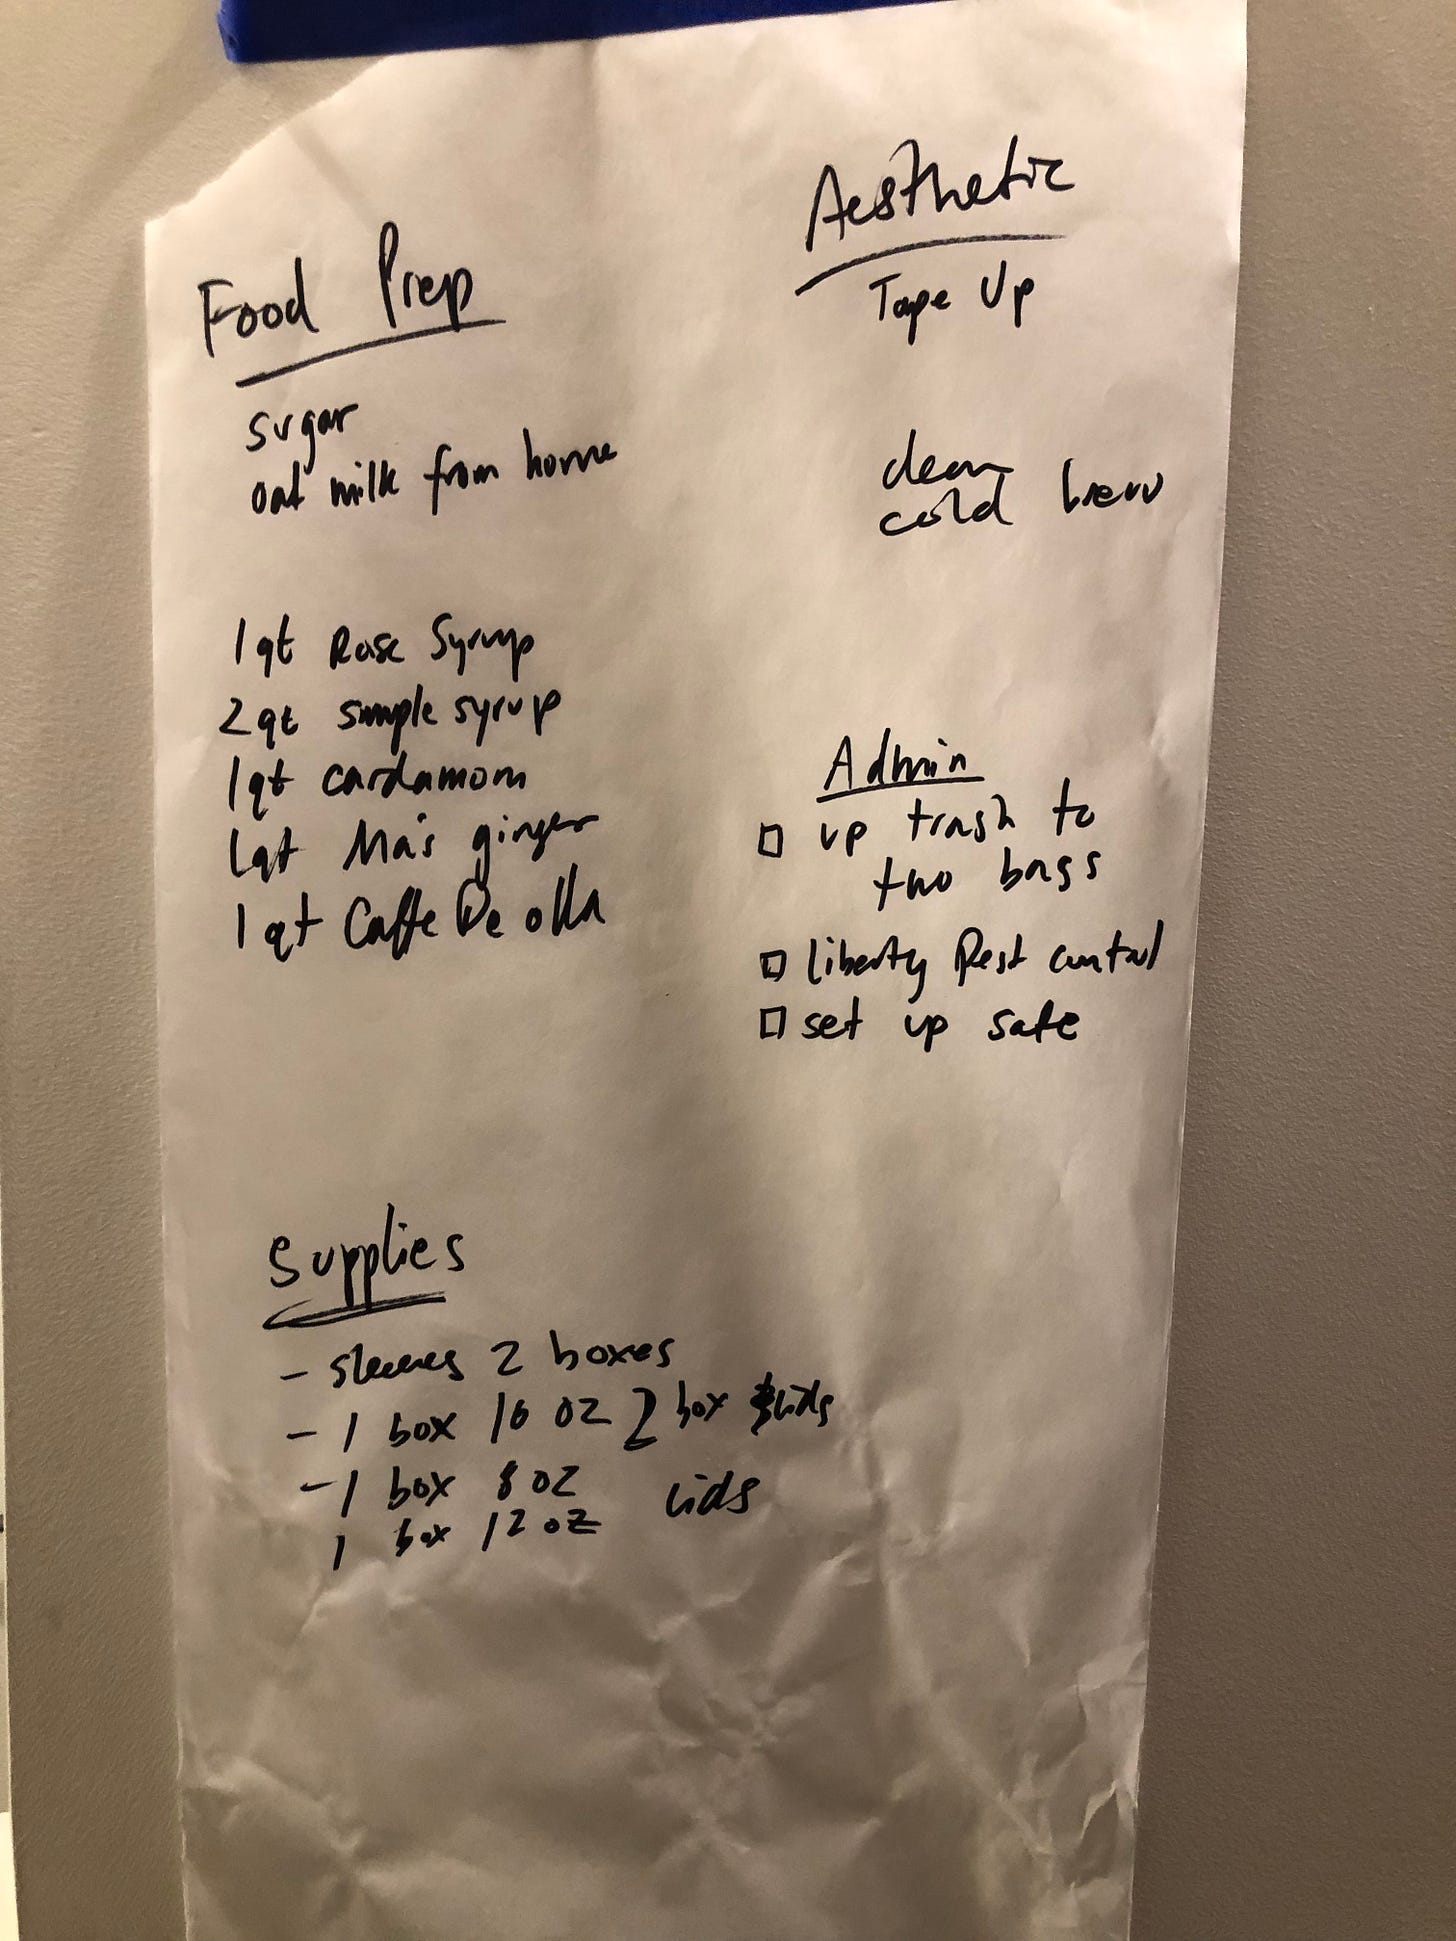 Food Prep
sugar
oat milk from home
1 qt Rose Syrup
2 qt simple syrup
1 qt cardamom
1 qt Ma's ginger
1 qt Caffe De olla
Aesthetic
Tape Up
clean
cold brew
Admin
□ up trash to
two bags
□ liberty Pest control
□ set up safe
Supplies
- sleeves 2 boxes
- 1 box 16 oz 2 box lids
- 1 box 8 oz lids
1 box 12 oz